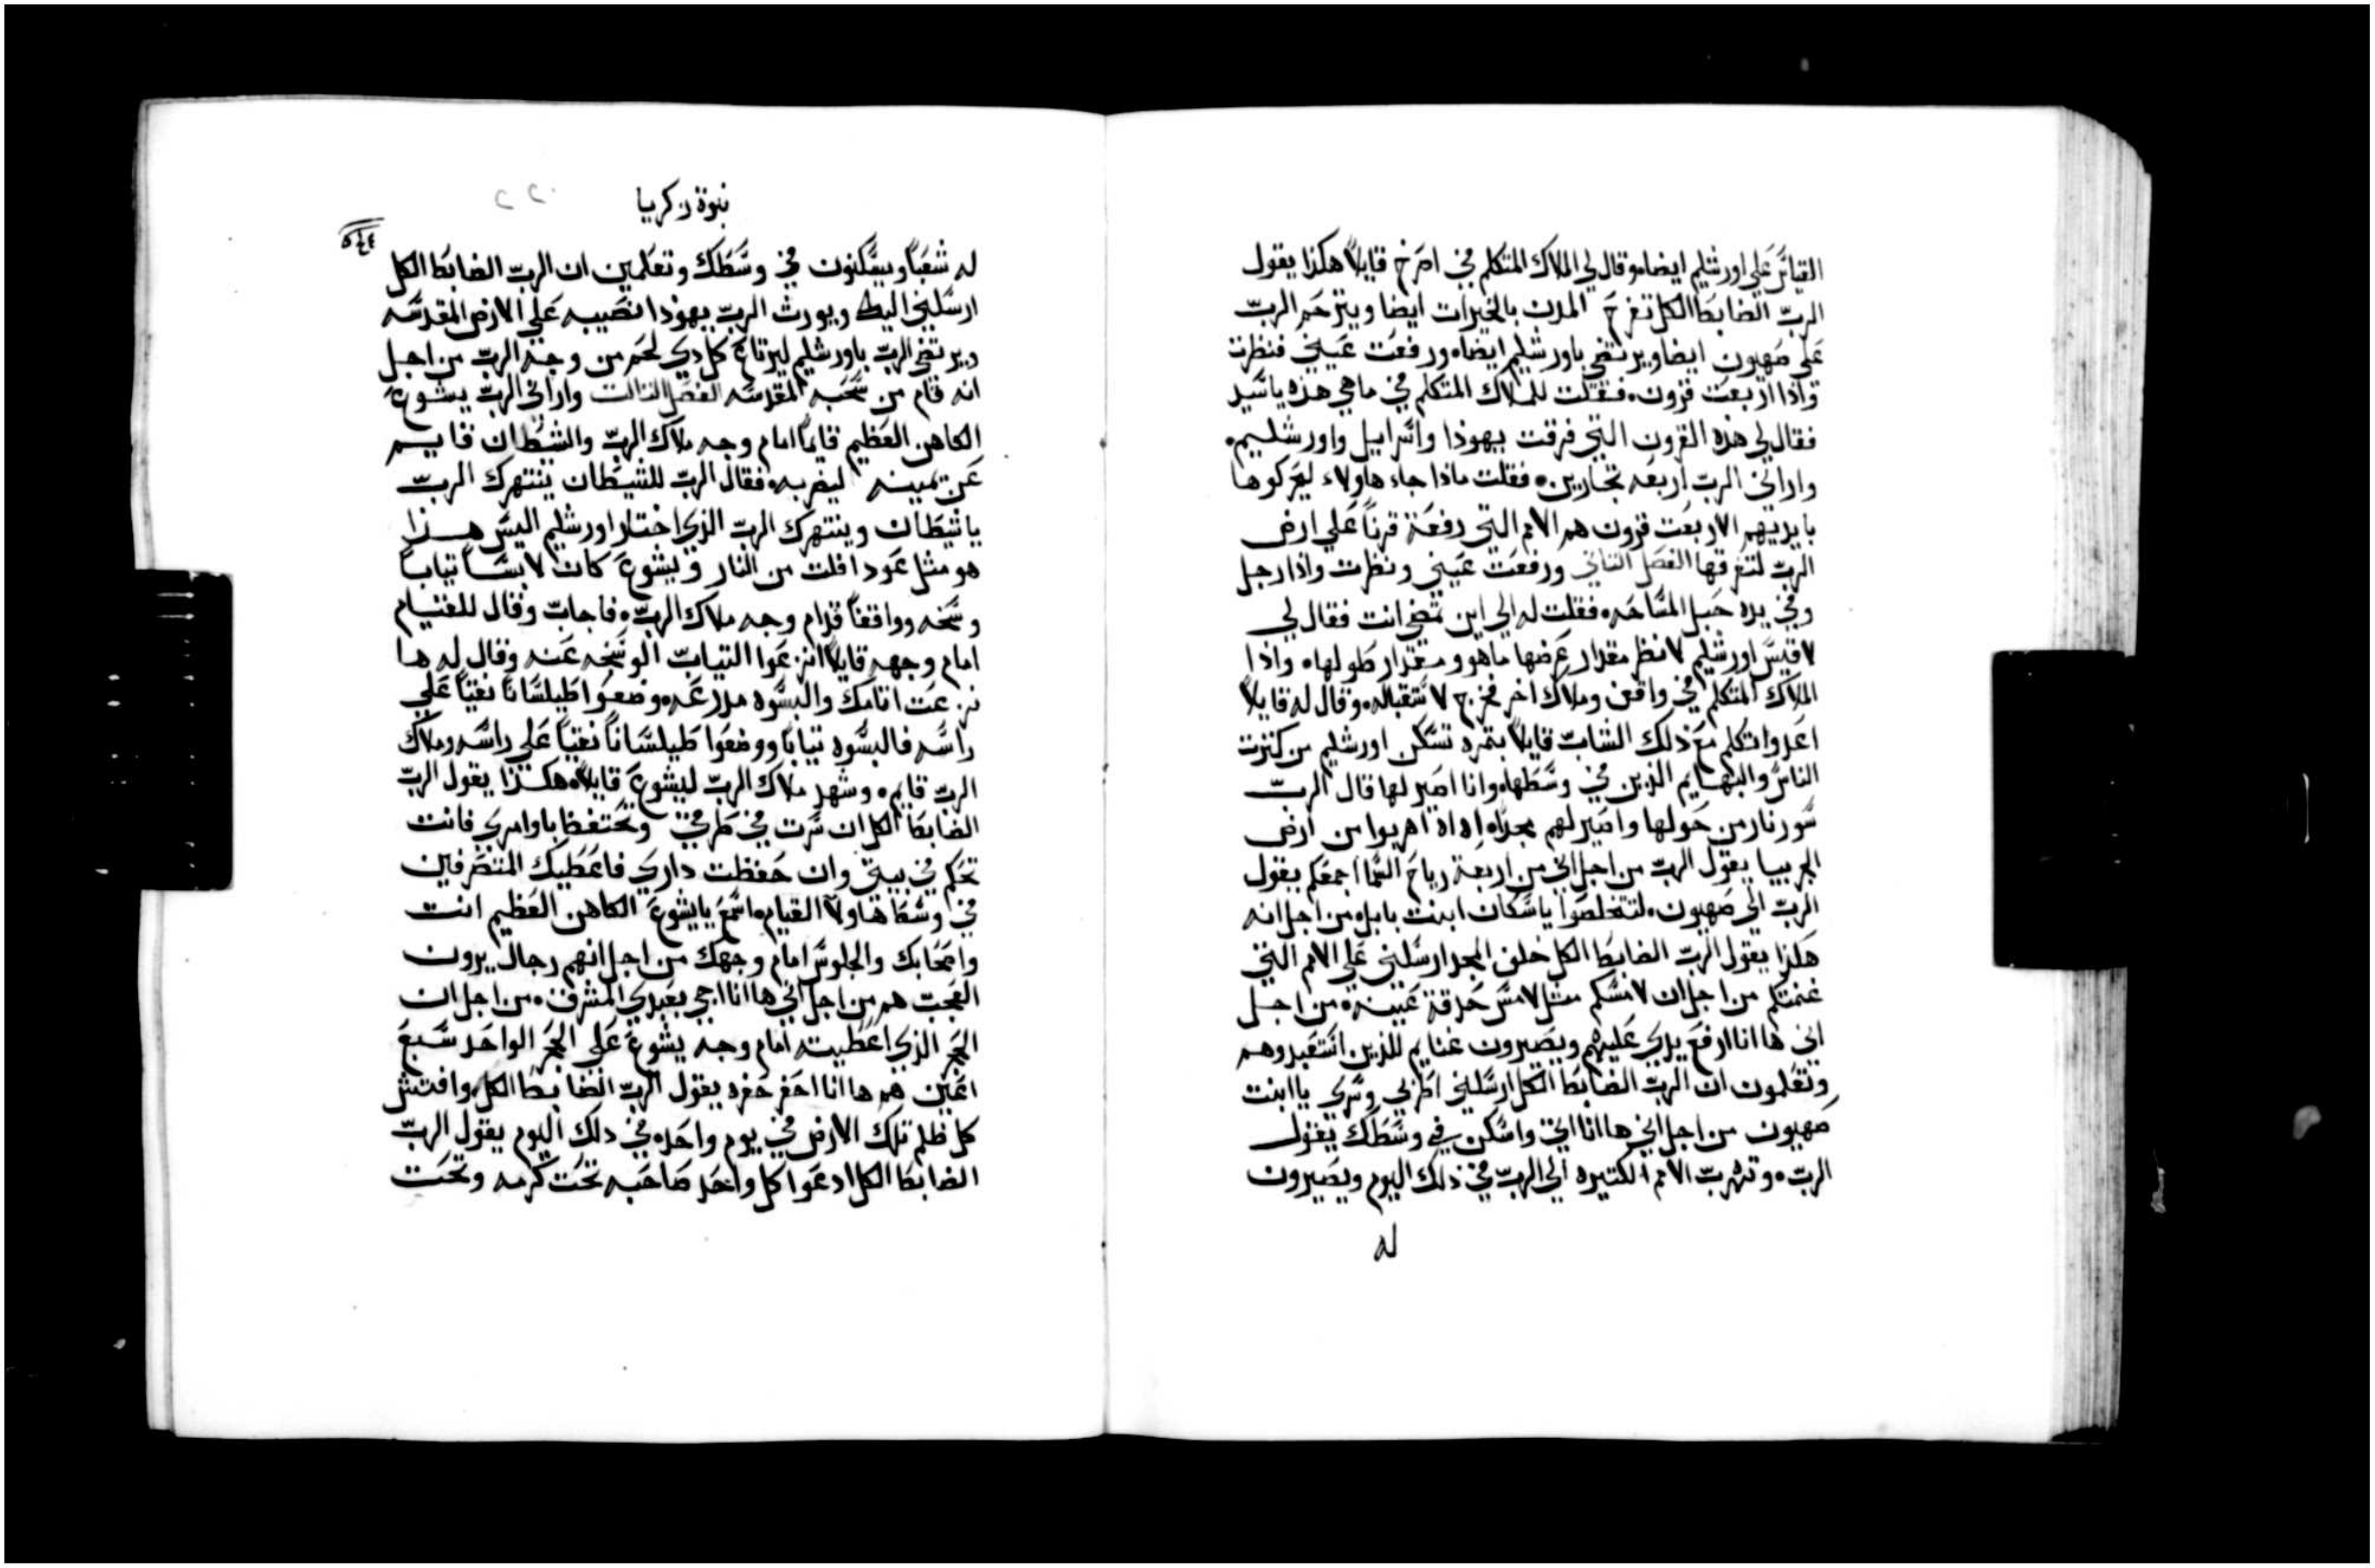 القياتر على اورشليم ايضا ه وقال لي الملاك المتكلم فيَّ اصرخ قايلاً هكذا يقول
الربّ الضابط الكل تفرح المدن بالخيرات ايضا ويترحم الربّ
على صهيون ايضا ويرتضي باورشليم ايضاه ورفعت عيني فنظرت
واذا اربعت قرون ه فقلت للملاك المتكلم في ماهي هذه ياسَيد
فقال لي هذه القرون التي فرقت يهوذا واسرايل واورشليم ه
واراني الرب اربعه نجارين ه فقلت ماذا جاء هاولاء ليعركوها
بايديهم الاربعت قرون هم الامم التي رفعة قرناً على ارض
الربّ لتفرقها الفصل التاني ورفعت عيني ونظرت واذا رجل
وفي يده حبل المسَاحه ه فقلت له الي اين تمضي انت فقال لي
لاقيسَ اورشليم لانظر مقدار عرضها ماهو ومقدار طولها ه واذا
الملاك المتكلم في واقف وملاك اخر فخرج لاستقباله ه وقال له قايلاً
اعدوا تكلم مع ذلك الشابّ قايلاً بتمره تسكن اورشليم من كترت
الناسَ والبهايم الذين في وسَطها ه وانا اصير لها قال الربّ
سَور نار من حولها واصير لهم مجداً ه اه اه اهربوا من ارض
الجربيا يقول الربّ من اجل اني من اربعة رياح السَما اجمعكم يقول
الربّ الي صهيون ه لتتخلصوا ياسَكان ابنت بابل ه من اجل انه
هكذا يقول الربّ الضابط الكل خلف المجد ارسَلني على الامم التي
غنمتكم من اجل ان لامسَكم مثل لامسَ حدقة عينه ه من اجل
اني هاانا ارفع يدي عليهم ويصيرون غنايم للذين استعبدوهم
وتعلمون ان الربّ الضابط الكل ارسَلني اطربي وسَري ياابنت
صهيون من اجل اني هاانا اتي واسَكن في وسَطك يقول
الربّ ه وتهربّ الامم الكتيره الي الربّ في ذلك اليوم ويصيرون
له
نبوة زكريا
٥٤٤
له شعباً ويسَكنون في وسَطك وتعلمين ان الربّ الضابط الكل
ارسَلني اليك ويورث الربّ يهوذا نصيبه على الارض المقدسَه
ويرتضي الربّ باورشليم ليرتاع كل ذي لحم من وجه الربّ من اجل
انه قام من سَحبه المقدسَه الفصل التالت واراني الربّ يشوع
الكاهن العظيم قايماً امام وجه ملاك الربّ والشيطان قايم
عن يمينه ليضربه ه فقال الربّ للشيطان ينتهرك الربّ
ياشيطان وينتهرك الربّ الذي اختار اورشليم اليسَ هذا
هو مثل عود افلت من النار ويشوع كان لابسَاً تياباً
وسَخه وواقفاً قدام وجه ملاك الربّ ه فاجابّ وقال للقيام
امام وجهه قايلاً انزعوا التيابّ الوسَخه عنه وقال له ها
نزعت اتامك والبسَوه مدرعه ه وضعوا طيلسَاناً نقياً على
راسَه فالبسَوه تياباً ووضعوا طيلسَاناً نقياً على راسَه وملاك
الربّ قايم ه وشهد ملاك الربّ ليشوع قايلاً ه هكذا يقول الربّ
الضابط الكل ان سَرت في طرقي وتحتفظ باوامري فانت
تحكم في بيتي وان حفظت داري فاعطيك المتصرفين
في وسَط هاولا القيام ه اسَمع يايشوع الكاهن العظيم انت
واصحابك والجلوسَ امام وجهك من اجل انهم رجال يرون
العجبّ هم من اجل اني هاانا اجي بعبدي المشرق ه من اجل ان
الحجر الذي اعطيته امام وجه يشوع على الحجر الواحد سَبع
اعين هم هاانا احفر حفره يقول الربّ الضابط الكل وافتش
كل ظلم تلك الارض في يوم واحد ه في ذلك اليوم يقول الربّ
الضابط الكل ادعوا كل واحد صاحبه تحت كرمه وتحت